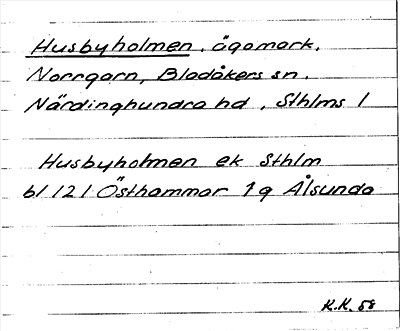 Husbyholmen, ägomark,
Norrgarn, Bladåkers sn,
Närdinghundra hd, Sthlms l
Husbyholmen ek Sthlm
bl 121 Östhammar 1g Ålsunda
K.K. 58